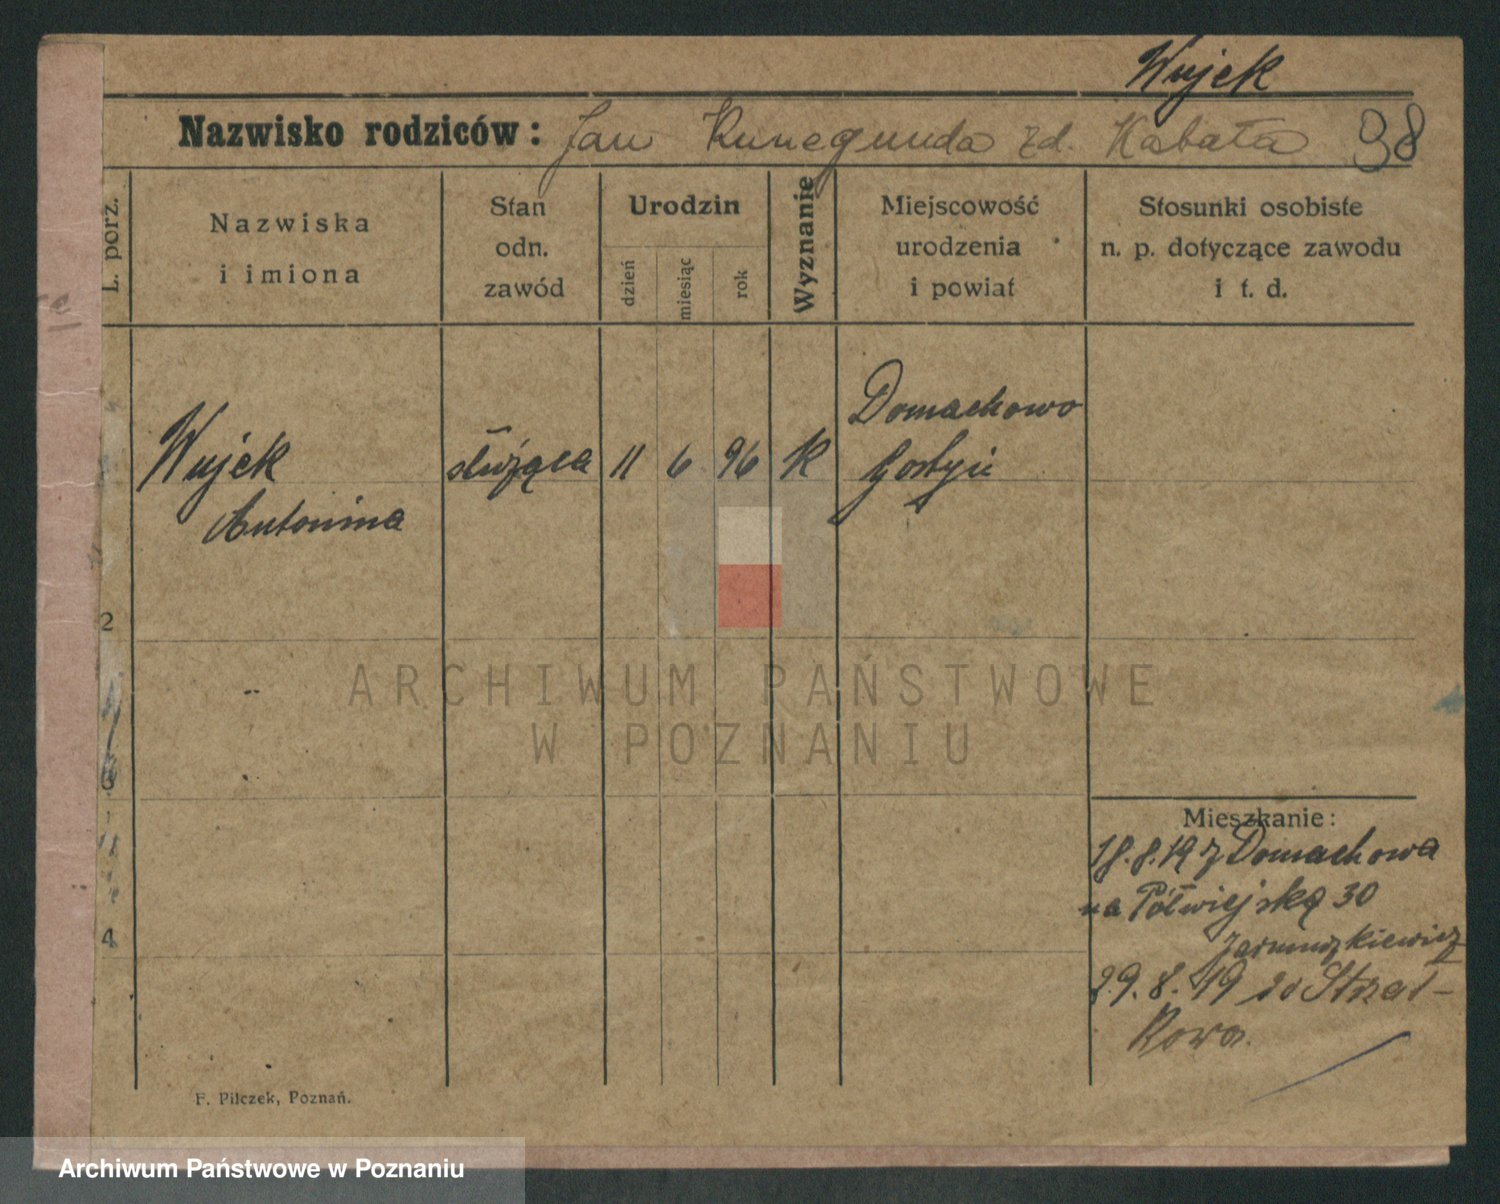 Wujek
Nazwisko rodziców: Jan Kunegunda zd. Kabała 98
L. porz.
Nazwiska
i imiona
Stan
odn.
zawód
Urodzin
dzień
miesiąc
rok
Wyznanie
Miejscowość
urodzenia
i powiat
Stosunki osobiste
n. p. dotyczące zawodu
i t. d.
Wujek
Antonina
służąca
11 6 96 K
Domachowo
Gostyń
2
3
4
Mieszkanie:
18.8.19 z Domachowa
na Półwiejską 30
Jarmuszkiewicz
29.8.19 do Strzał-
kowa.
F. Pilczek, Poznań.
ARCHIWUM PAŃSTWOWE
W POZNANIU
Archiwum Państwowe w Poznaniu